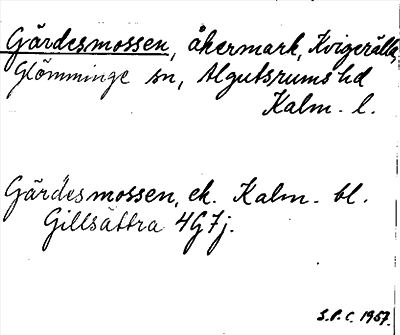 Gärdesmossen, åkermark, Kvigerälla,
Glömminge sn, Algutsrums hd
Kalm. l.
Gärdesmossen, ek. Kalm. bl.
Gillsättra 4G7j.
S.P.C. 1967.